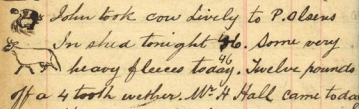 John took cow Lively to P. Olsens
In shed tonight 46. Some very
heavy fleeces today. 46 Twelve pounds
off a 4 tooth wether. Mr H Hall came today